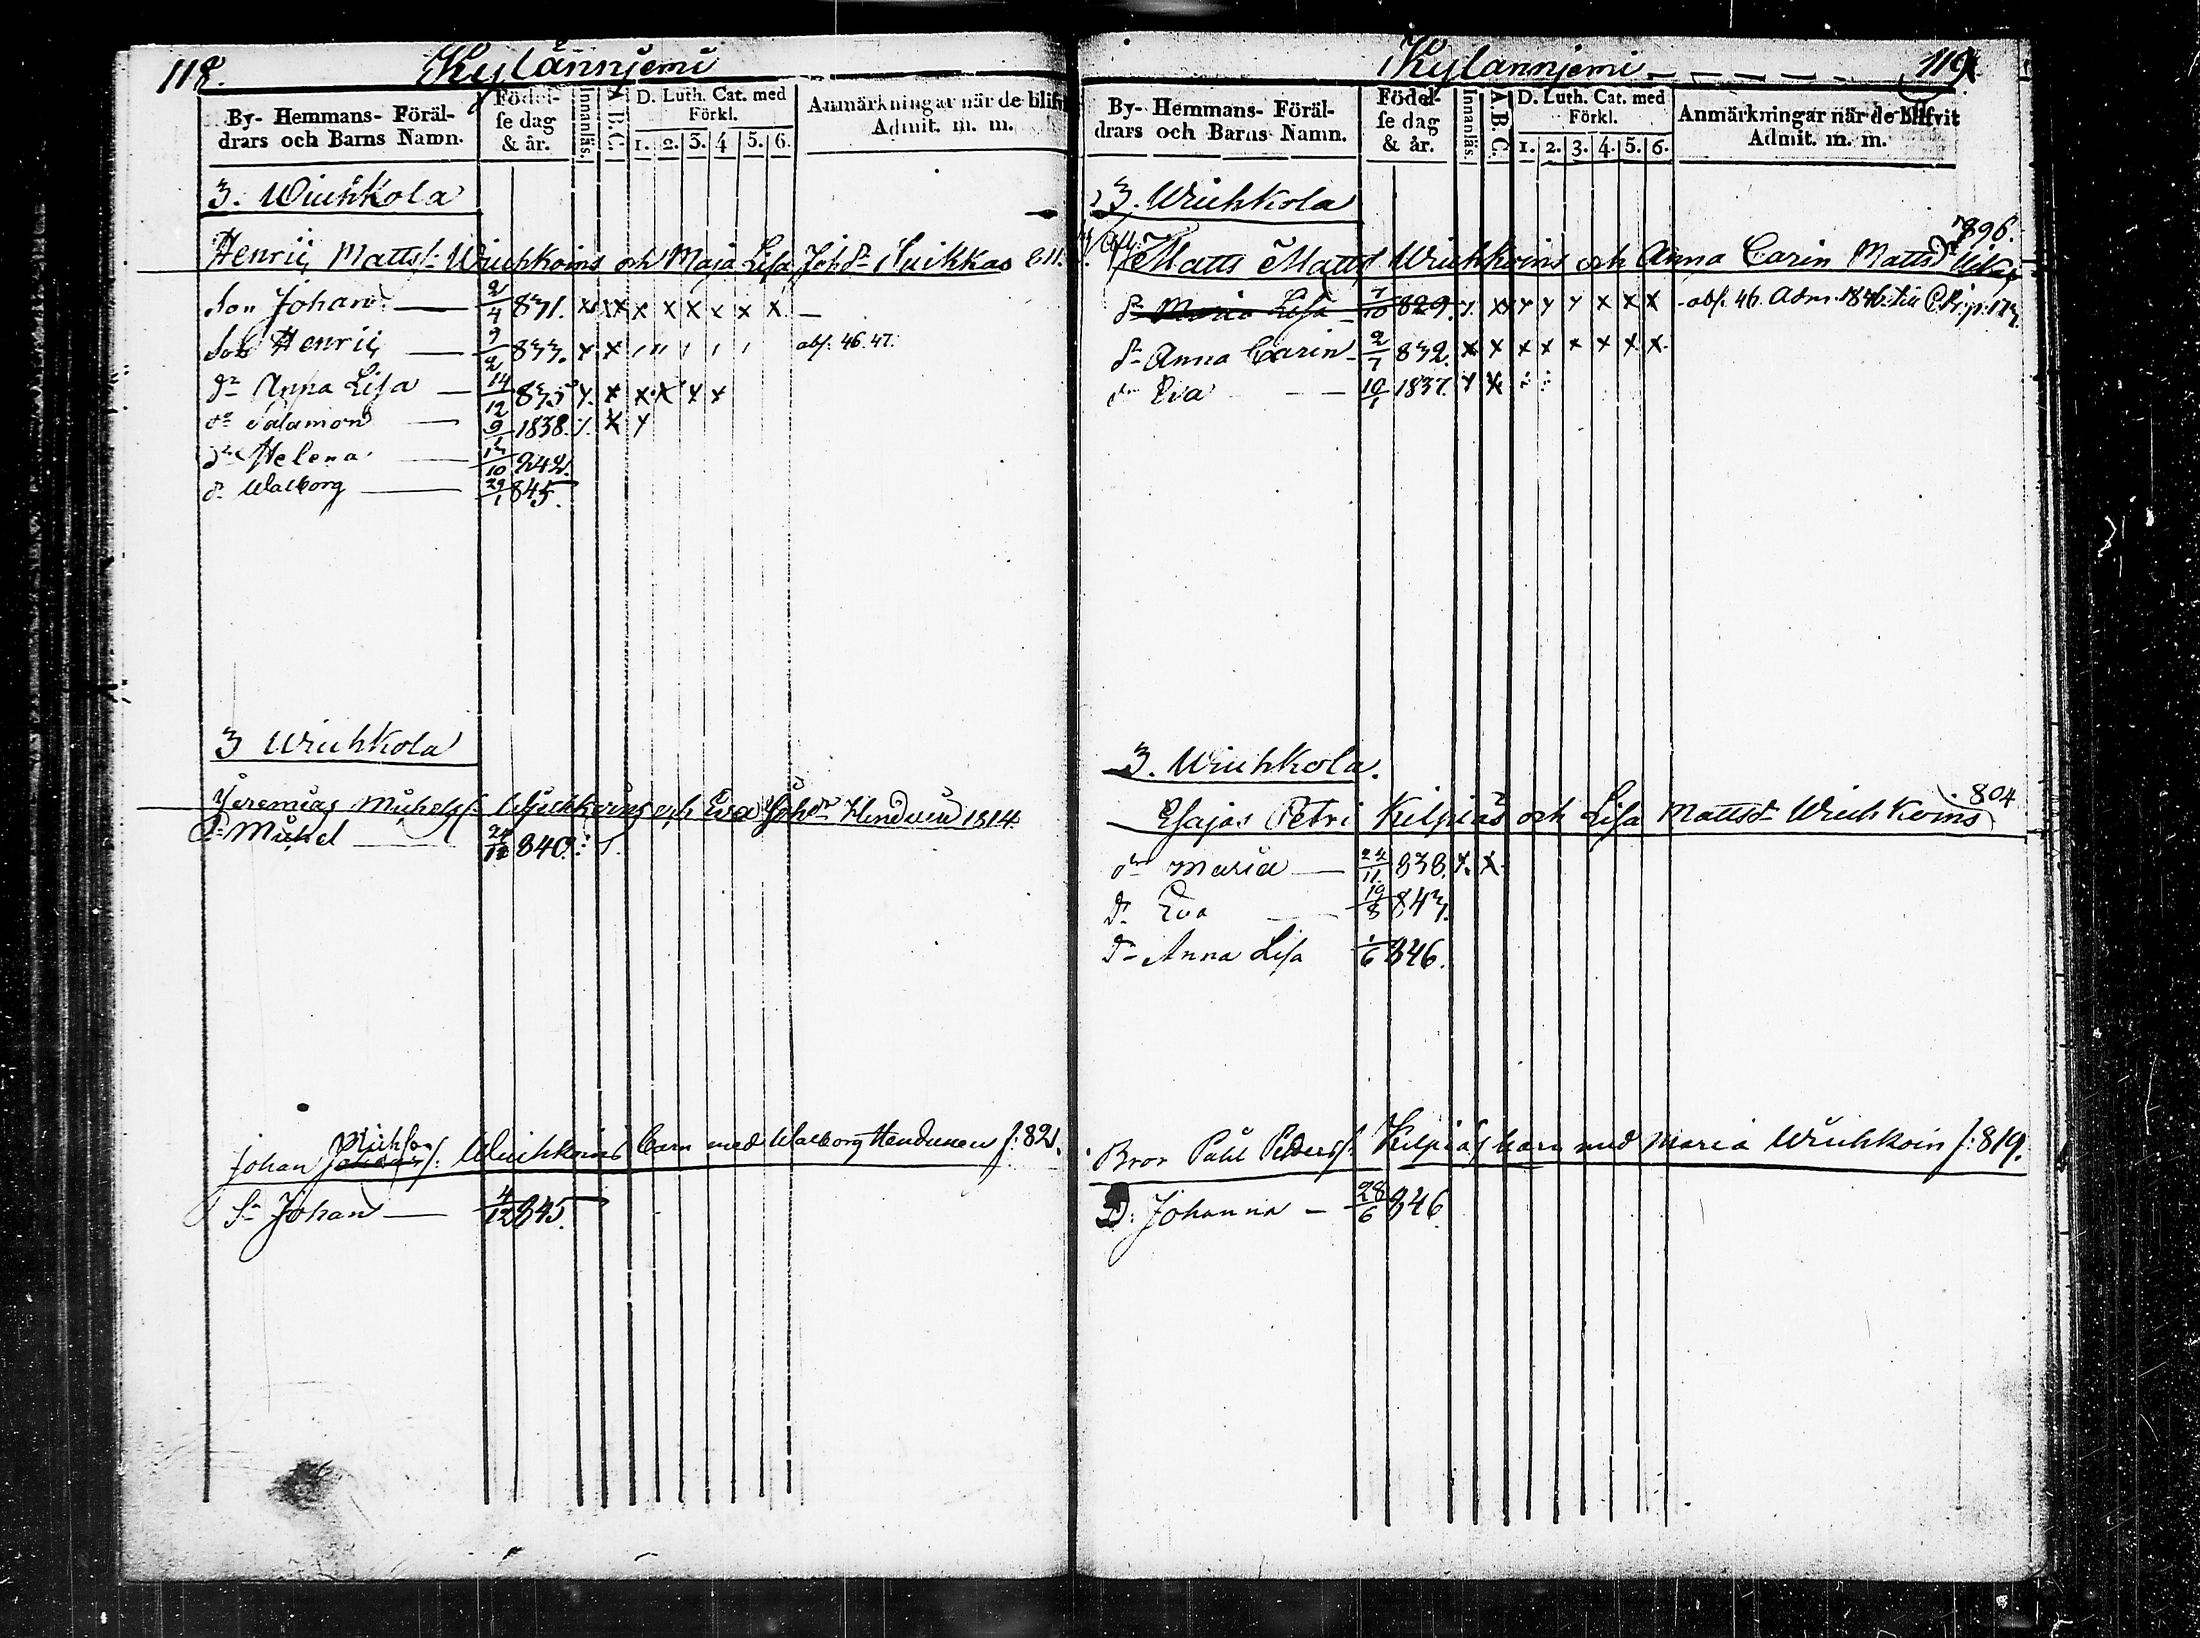 118.
Kylänniemi
By- Hemmans- Föräl-
drars och Barns Namn.
Födel-
se dag
& år.
Innanläs.
A.B.C.
D. Luth. Cat. med
Förkl.
1. 2. 3. 4 5. 6.
Anmärkningar när de blifv
Admit. m. m.
3. Wiuhkola
Henric Mattss: Wiuhkoins och Maja Lisa Joh dr Suikkas 811.
son Johan — 2/4 831. x x x x x x x x x. —
Son Henric — 9/2 833. x x abs. 46. 47.
dr Anna Lisa — 14/12 835 x x x x x x
sn Salamon — 9/1 1838. x x
dr Helena — 10 242.
dr Walborg — 29/1 845.
3 Wiuhkola
Jeremias Michelss: Wiuhkoins och Eva Joh dr Hendunen 1814
Sn Michel — 12 840.
Michson
Johan Johanss: Wiuhkoins barn med Walborg Hendunen f: 821.
Sn Johan — 4/12 845.
Kylänniemi
119.
By- Hemmans- Föräl-
drars och Barns Namn.
Födel-
se dag
& år.
Innanläs.
A.B.C.
D. Luth. Cat. med
Förkl.
1. 2. 3. 4. 5. 6.
Anmärkningar när de blifvit
Admit. m. m.
3. Wiuhkola
896.
Matts Mattss Wiuhkoins och Anna Carin Matts dr
dr Maria Lisa — 7/10 829. x x x x x x x x abs. 46. Adm. 1846.
dr Anna Carin — 2/7 832 x x x x x x x x.
dr Eva — 10/1 1837. x x
3. Wiuhkola.
804
Esajas Petri Kilpiäs och Lisa Mattsdr Wiuhkoins
dr Maria — 24/11. 838. x x
dr Eva — 19/8 843.
dr Anna Lisa 1/6 846.
Bror Pähl Pederss: Kilpiäs barn med Maria Wiuhkoin f: 819.
D: Johanna — 28/6 846